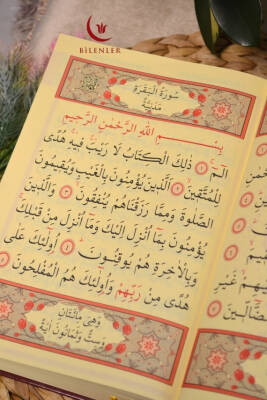 BİLENLER
سُورَةُ الْبَقَرَةِ
مَدَنِيَّةٌ
بِسْمِ اللّٰهِ الرَّحْمٰنِ الرَّحِيمِ
الٓمٓ ﴿١﴾ ذٰلِكَ الْكِتَابُ لَا رَيْبَ فِيهِ هُدًى
لِلْمُتَّقِينَ ﴿٢﴾ اَلَّذِينَ يُؤْمِنُونَ بِالْغَيْبِ وَيُقِيمُونَ
الصَّلٰوةَ وَمِمَّا رَزَقْنَاهُمْ يُنْفِقُونَ ﴿٣﴾ وَالَّذِينَ
يُؤْمِنُونَ بِمَٓا اُنْزِلَ اِلَيْكَ وَمَٓا اُنْزِلَ مِنْ قَبْلِكَ
وَبِالْاٰخِرَةِ هُمْ يُوقِنُونَ ﴿٤﴾ اُو۬لٰٓئِكَ عَلٰى
هُدًى مِنْ رَبِّهِمْ وَاُو۬لٰٓئِكَ هُمُ الْمُفْلِحُونَ ﴿٥﴾
وَهِيَ مِائَتَانِ
وَسِتٌّ وَثَمَانُونَ اٰيَةً